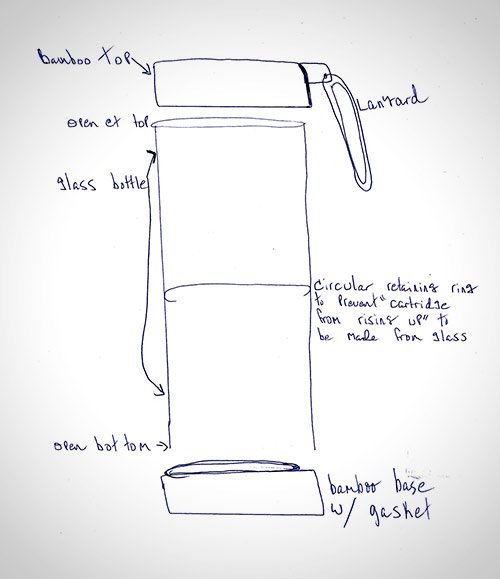 Bamboo Top
Lanyard
open at top
glass bottle
circular retaining ring
to prevent "cartridge
from rising up" to
be made from glass
open bottom
bamboo base
w/ gasket